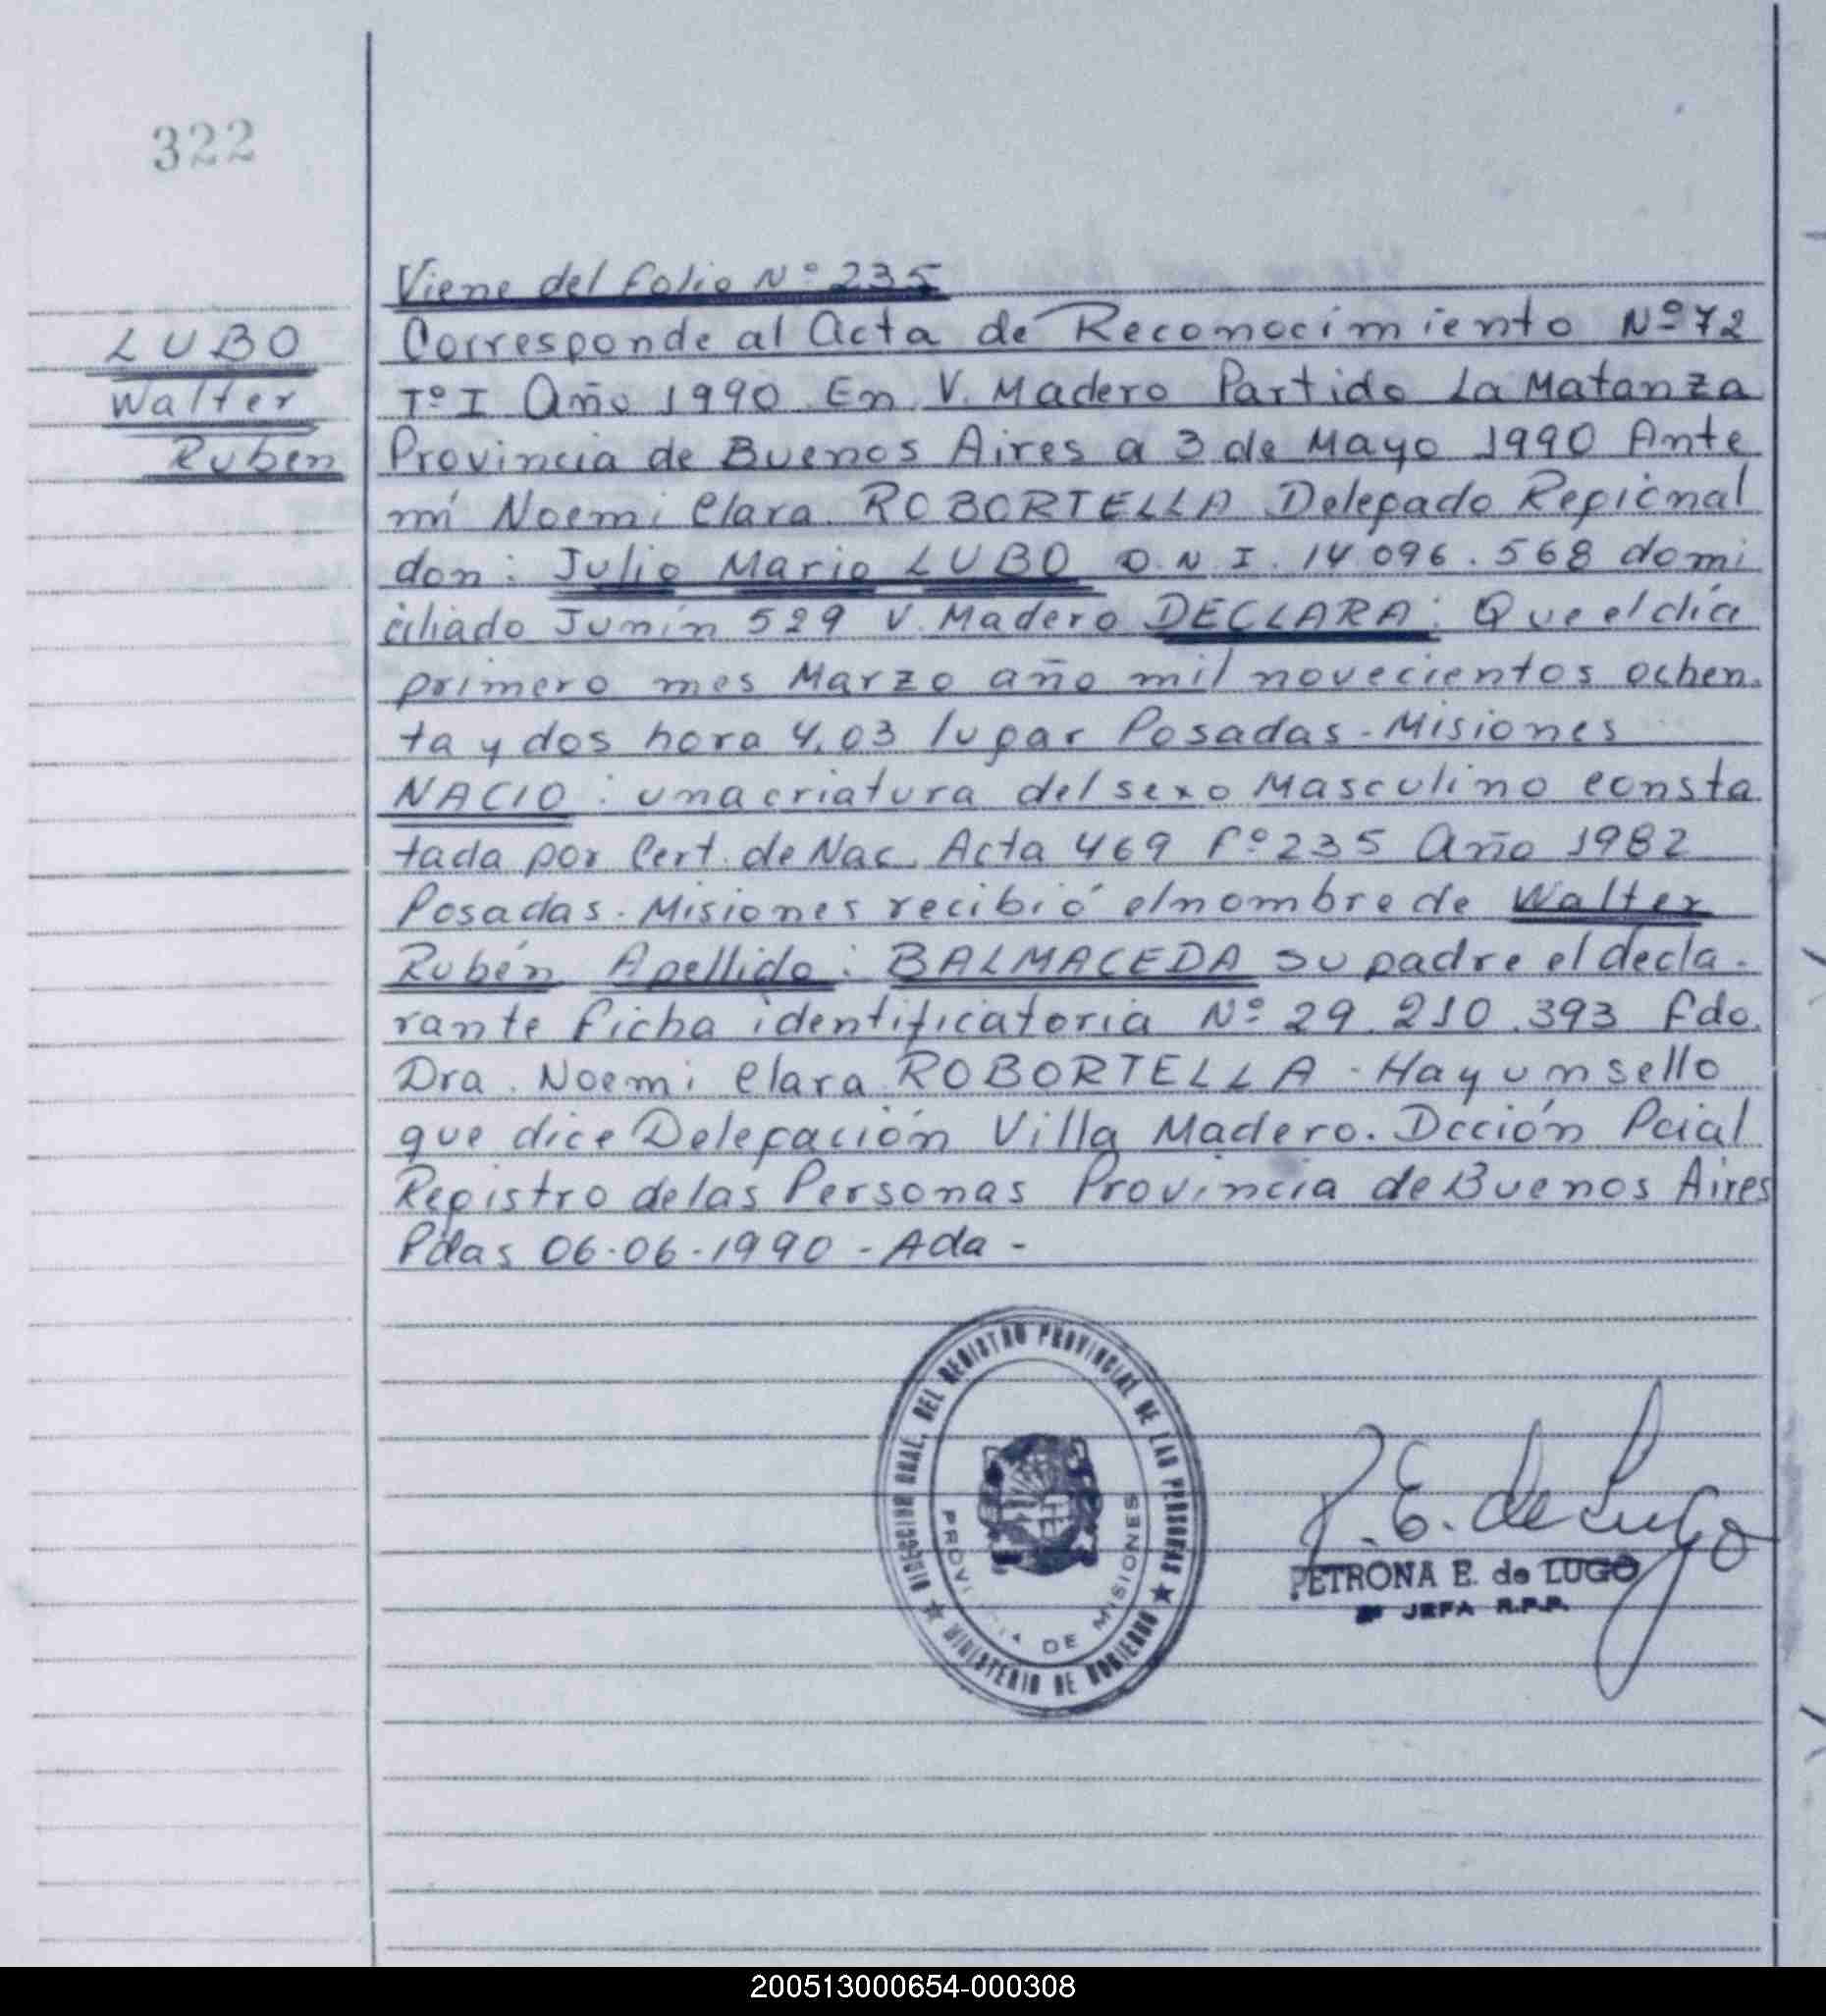 322
LUBO
Walter
Ruben
Viene del folio Nº 235
Corresponde al Acta de Reconocimiento Nº 72
Tº I Año 1990 En V. Madero Partido La Matanza
Provincia de Buenos Aires a 3 de Mayo 1990 Ante
mí Noemi Clara ROBORTELLA Delegado Regional
don: Julio Mario LUBO D.N.I. 14.096.568 domi
ciliado Junín 529 V. Madero DECLARA: Que el día
primero mes Marzo año mil novecientos ochen
ta y dos hora 4.03 lugar Posadas - Misiones
NACIO: una criatura del sexo Masculino consta
tada por Cert. de Nac. Acta 469 Fº 235 Año 1982
Posadas - Misiones recibió el nombre de Walter
Rubén Apellido: BALMACEDA su padre el decla-
rante ficha identificatoria Nº 29.210.393 fdo.
Dra. Noemi Clara ROBORTELLA - Hay un sello
que dice Delegación Villa Madero. Dcción Pcial
Registro de las Personas Provincia de Buenos Aires
Pdas 06-06-1990 - Ada -
DIRECCION GRAL. DEL REGISTRO PROVINCIAL DE LAS PERSONAS
MINISTERIO DE GOBIERNO
PROVINCIA DE MISIONES
P. E. de Lugo
PETRONA E. de LUGO
JEFA R.P.P.
200513000654-000308